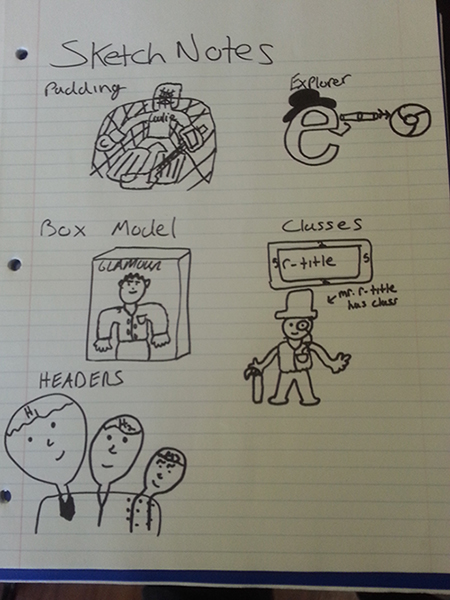 Sketch Notes
Padding
Explorer
e
Box Model
GLAMOUR
Classes
r-title
mr. r-title
has class
HEADERS
H1